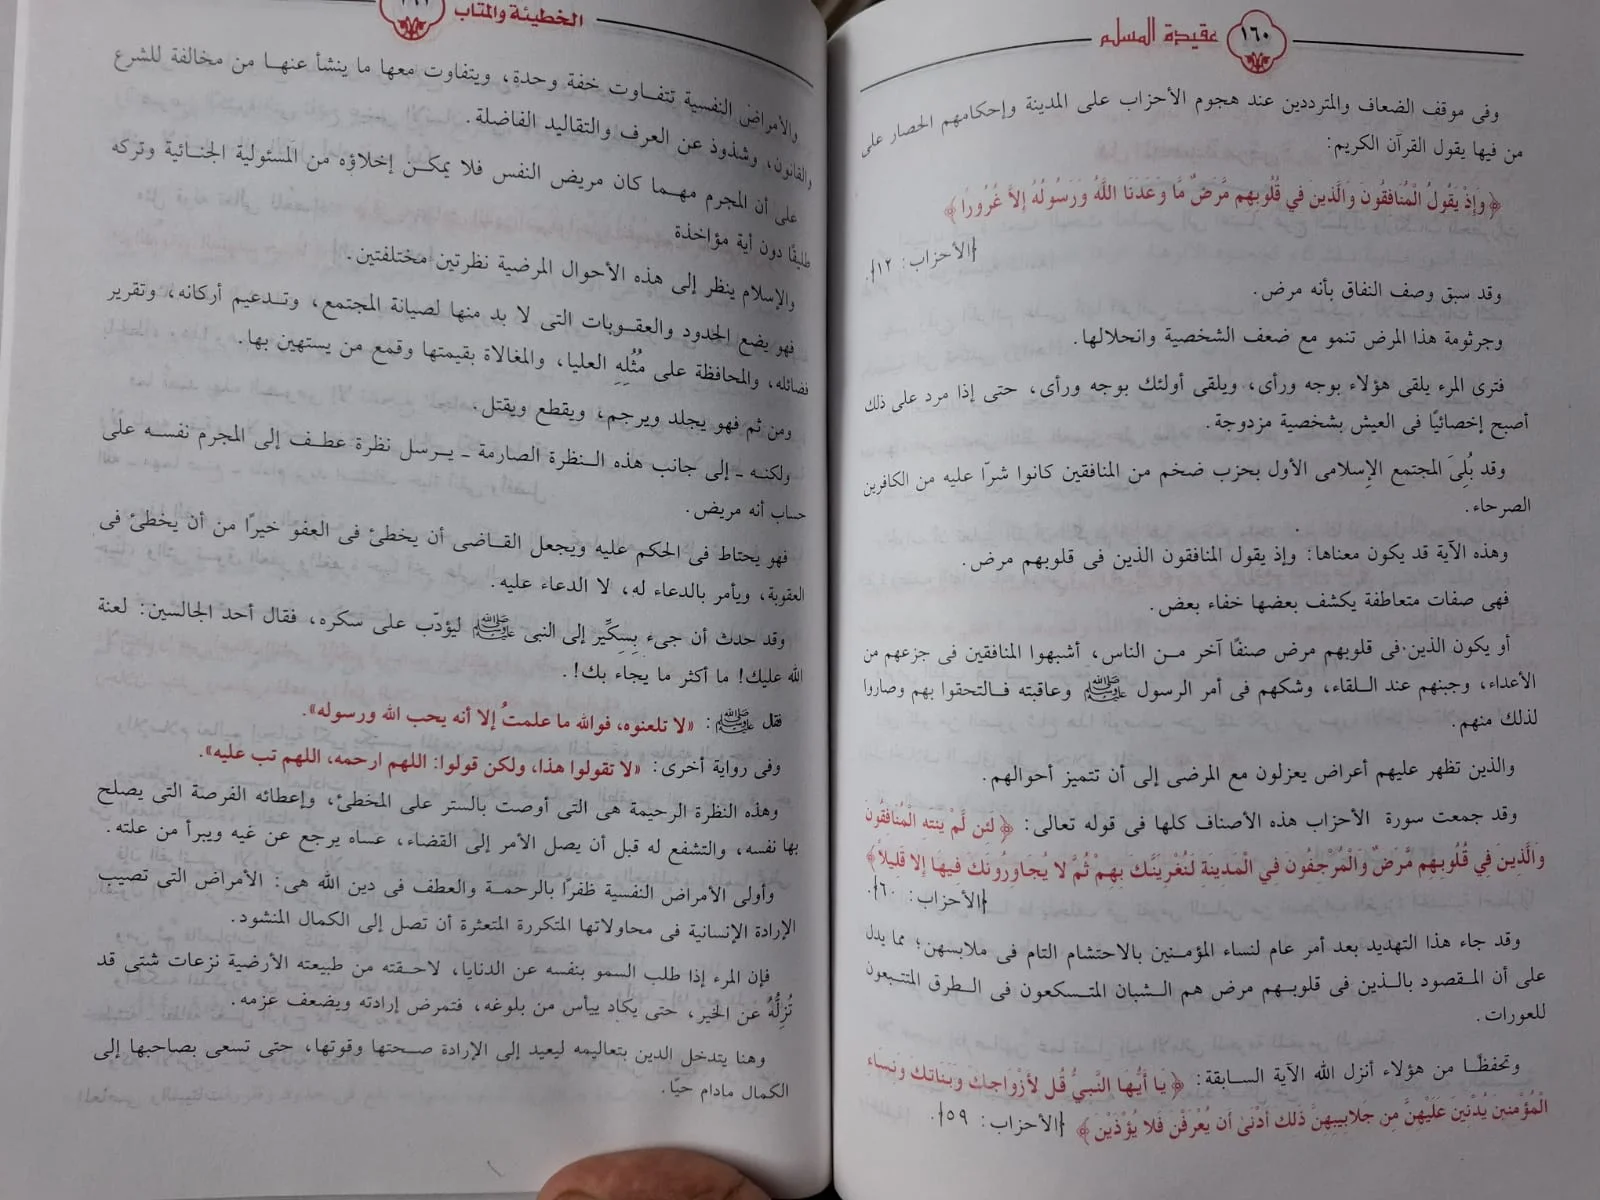 ١٦٠
عقيدة المسلم
وفى موقف الضعاف والمترددين عند هجوم الأحزاب على المدينة وإحكامهم الحصار على
من فيها يقول القرآن الكريم:
﴿وَإِذْ يَقُولُ الْمُنَافِقُونَ وَالَّذِينَ فِي قُلُوبِهِم مَّرَضٌ مَّا وَعَدَنَا اللَّهُ وَرَسُولُهُ إِلاَّ غُرُورًا﴾
{الأحزاب: ١٢}.
وقد سبق وصف النفاق بأنه مرض.
وجرثومة هذا المرض تنمو مع ضعف الشخصية وانحلالها.
فترى المرء يلقى هؤلاء بوجه ورأى، ويلقى أولئك بوجه ورأى، حتى إذا مرد على ذلك
أصبح إخصائيًا فى العيش بشخصية مزدوجة.
وقد بُلِىَ المجتمع الإسلامى الأول بحزب ضخم من المنافقين كانوا شرّا عليه من الكافرين
الصرحاء.
وهذه الآية قد يكون معناها: وإذ يقول المنافقون الذين فى قلوبهم مرض.
فهى صفات متعاطفة يكشف بعضها خفاء بعض.
أو يكون الذين فى قلوبهم مرض صنفًا آخر مـن الناس، أشبهوا المنافقين فى جزعهم من
الأعداء، وجبنهم عند اللقاء، وشكهم فى أمر الرسول ﷺ وعاقبته فالتحقوا بهم وصاروا
لذلك منهم.
والذين تظهر عليهم أعراض يعزلون مع المرضى إلى أن تتميز أحوالهم.
وقد جمعت سورة الأحزاب هذه الأصناف كلها فى قوله تعالى: ﴿لَئِن لَّمْ يَنتَهِ الْمُنَافِقُونَ
وَالَّذِينَ فِي قُلُوبِهِم مَّرَضٌ وَالْمُرْجِفُونَ فِي الْمَدِينَةِ لَنُغْرِيَنَّكَ بِهِمْ ثُمَّ لا يُجَاوِرُونَكَ فِيهَا إِلا قَلِيلاً﴾
{الأحزاب: ٦٠}.
وقد جاء هذا التهديد بعد أمر عام لنساء المؤمـنين بالاحتشام التام فى ملابسهن؛ مما يدل
على أن المقصود بالـذين فى قلوبـهم مرض هم الشبان المتسكعون فى الطرق المتتبعون
للعورات.
وتحفظًا من هؤلاء أنزل الله الآية السابقة: ﴿يَا أَيُّهَا النَّبِيُّ قُل لأَزْوَاجِكَ وَبَنَاتِكَ وَنِسَاءِ
الْمُؤْمِنِينَ يُدْنِينَ عَلَيْهِنَّ مِن جَلابِيبِهِنَّ ذَلِكَ أَدْنَىٰ أَن يُعْرَفْنَ فَلا يُؤْذَيْنَ﴾ {الأحزاب: ٥٩}.
الخطيئة والمتاب
والأمراض النفسية تتفـاوت خفة وحدة، ويتفاوت معها ما ينشأ عنهـا من مخالفة للشرع
والقانون، وشذوذ عن العرف والتقاليد الفاضلة.
على أن المجرم مهـما كان مريض النفس فلا يمكـن إخلاؤه من المسئولية الجنائية وتركه
طليقًا دون أية مؤاخذة
والإسلام ينظر إلى هذه الأحوال المرضية نظرتين مختلفتين.
فهو يضع الحدود والعقـوبات التى لا بد منها لصيانة المجتمع، وتـدعيم أركانه، وتقرير
فضائله، والمحافظة على مُثُلِهِ العليا، والمغالاة بقيمتها وقمع من يستهين بها.
ومن ثم فهو يجلد ويرجم، ويقطع ويقتل.
ولكنه ـ إلى جانب هذه النظرة الصارمة ـ يـرسل نظرة عطـف إلى المجرم نفسـه على
حساب أنه مريض.
فهو يحتاط فى الحكم عليه ويجعل القـاضى أن يخطئ فى العفو خيرًا من أن يخطئ فى
العقوبة، ويأمر بالدعاء له، لا الدعاء عليه.
وقد حدث أن جىء بِسِكِّير إلى النبى ﷺ ليؤدّب على سكره، فقال أحد الجالسين: لعنة
الله عليك! ما أكثر ما يجاء بك!.
فقل ﷺ: «لا تلعنوه، فوالله ما علمتُ إلا أنه يحب الله ورسوله».
وفى رواية أخرى: «لا تقولوا هذا، ولكن قولوا: اللهم ارحمه، اللهم تب عليه».
وهذه النظرة الرحيمة هى التى أوصت بالستر على المخطئ، وإعطائه الفرصة التى يصلح
بها نفسه، والتشفع له قبل أن يصل الأمر إلى القضاء، عساه يرجع عن غيه ويبرأ من علته.
وأولى الأمراض النفسية ظفرًا بالرحمـة والعطف فى دين الله هى: الأمراض التى تصيب
الإرادة الإنسانية فى محاولاتها المتكررة المتعثرة أن تصل إلى الكمال المنشود.
فإن المرء إذا طلب السمو بنفسه عن الدنايا، لاحقته من طبيعته الأرضية نزعات شتى قد
تُزِلُّهُ عن الخير، حتى يكاد ييأس من بلوغه، فتمرض إرادته ويضعف عزمه.
وهنا يتدخل الدين بتعاليمه ليعيد إلى الإرادة صـحتها وقوتها، حتى تسعى بصاحبها إلى
الكمال مادام حيّا.